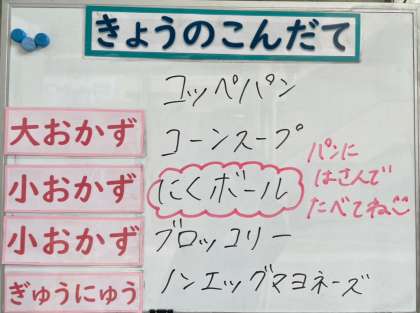 きょうのこんだて
コッペパン
大おかず コーンスープ
小おかず にくボール
パンに
はさんで
たべてね
小おかず ブロッコリー
ぎゅうにゅう ノンエッグマヨネーズ